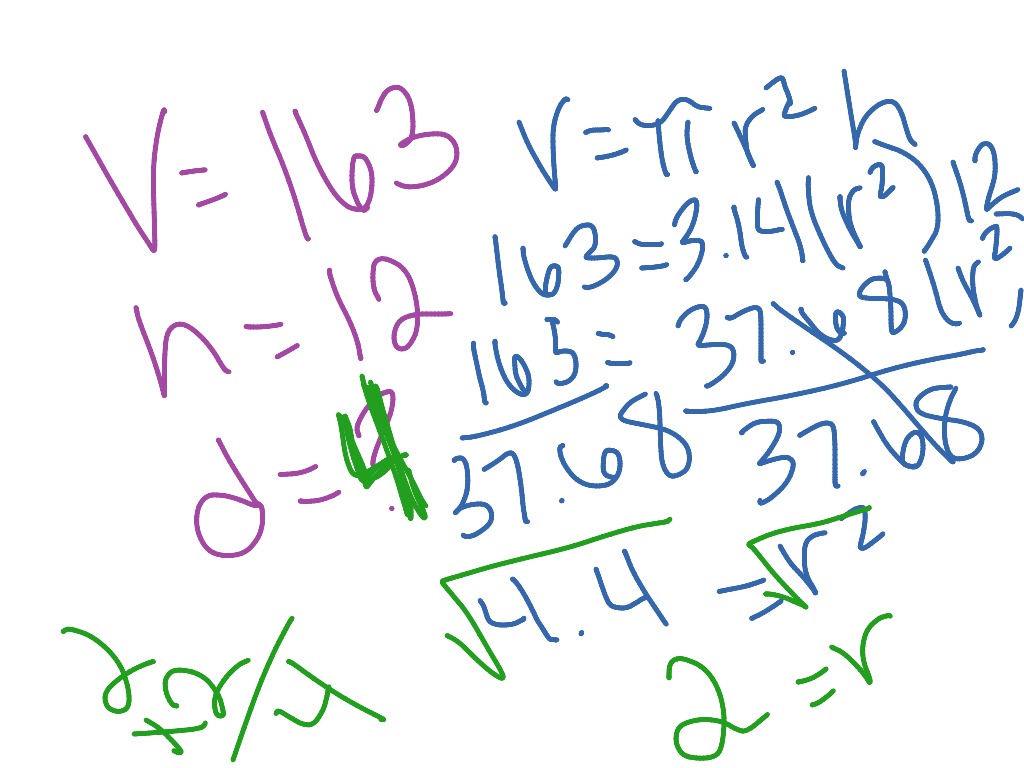 V=163
h=12
d=4
V=πr²h
163=3.14(r²)12
163=37.68(r²)
37.68 37.68
√4.4 =√r²
2=r